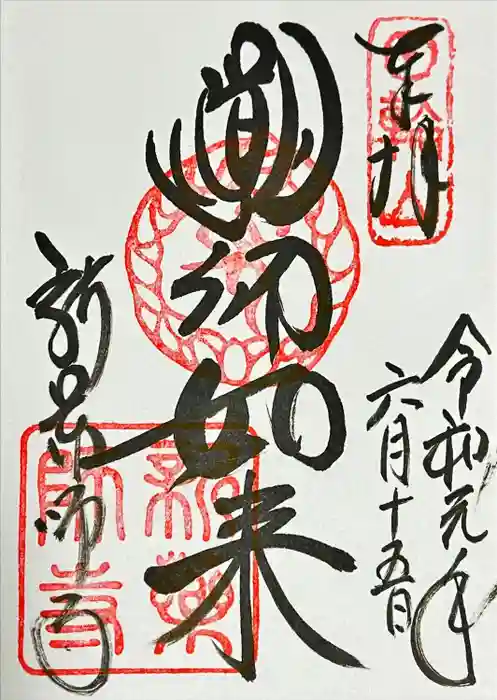 奉拝
令和元年
六月十五日
薬師如来
新薬師寺
新薬師寺